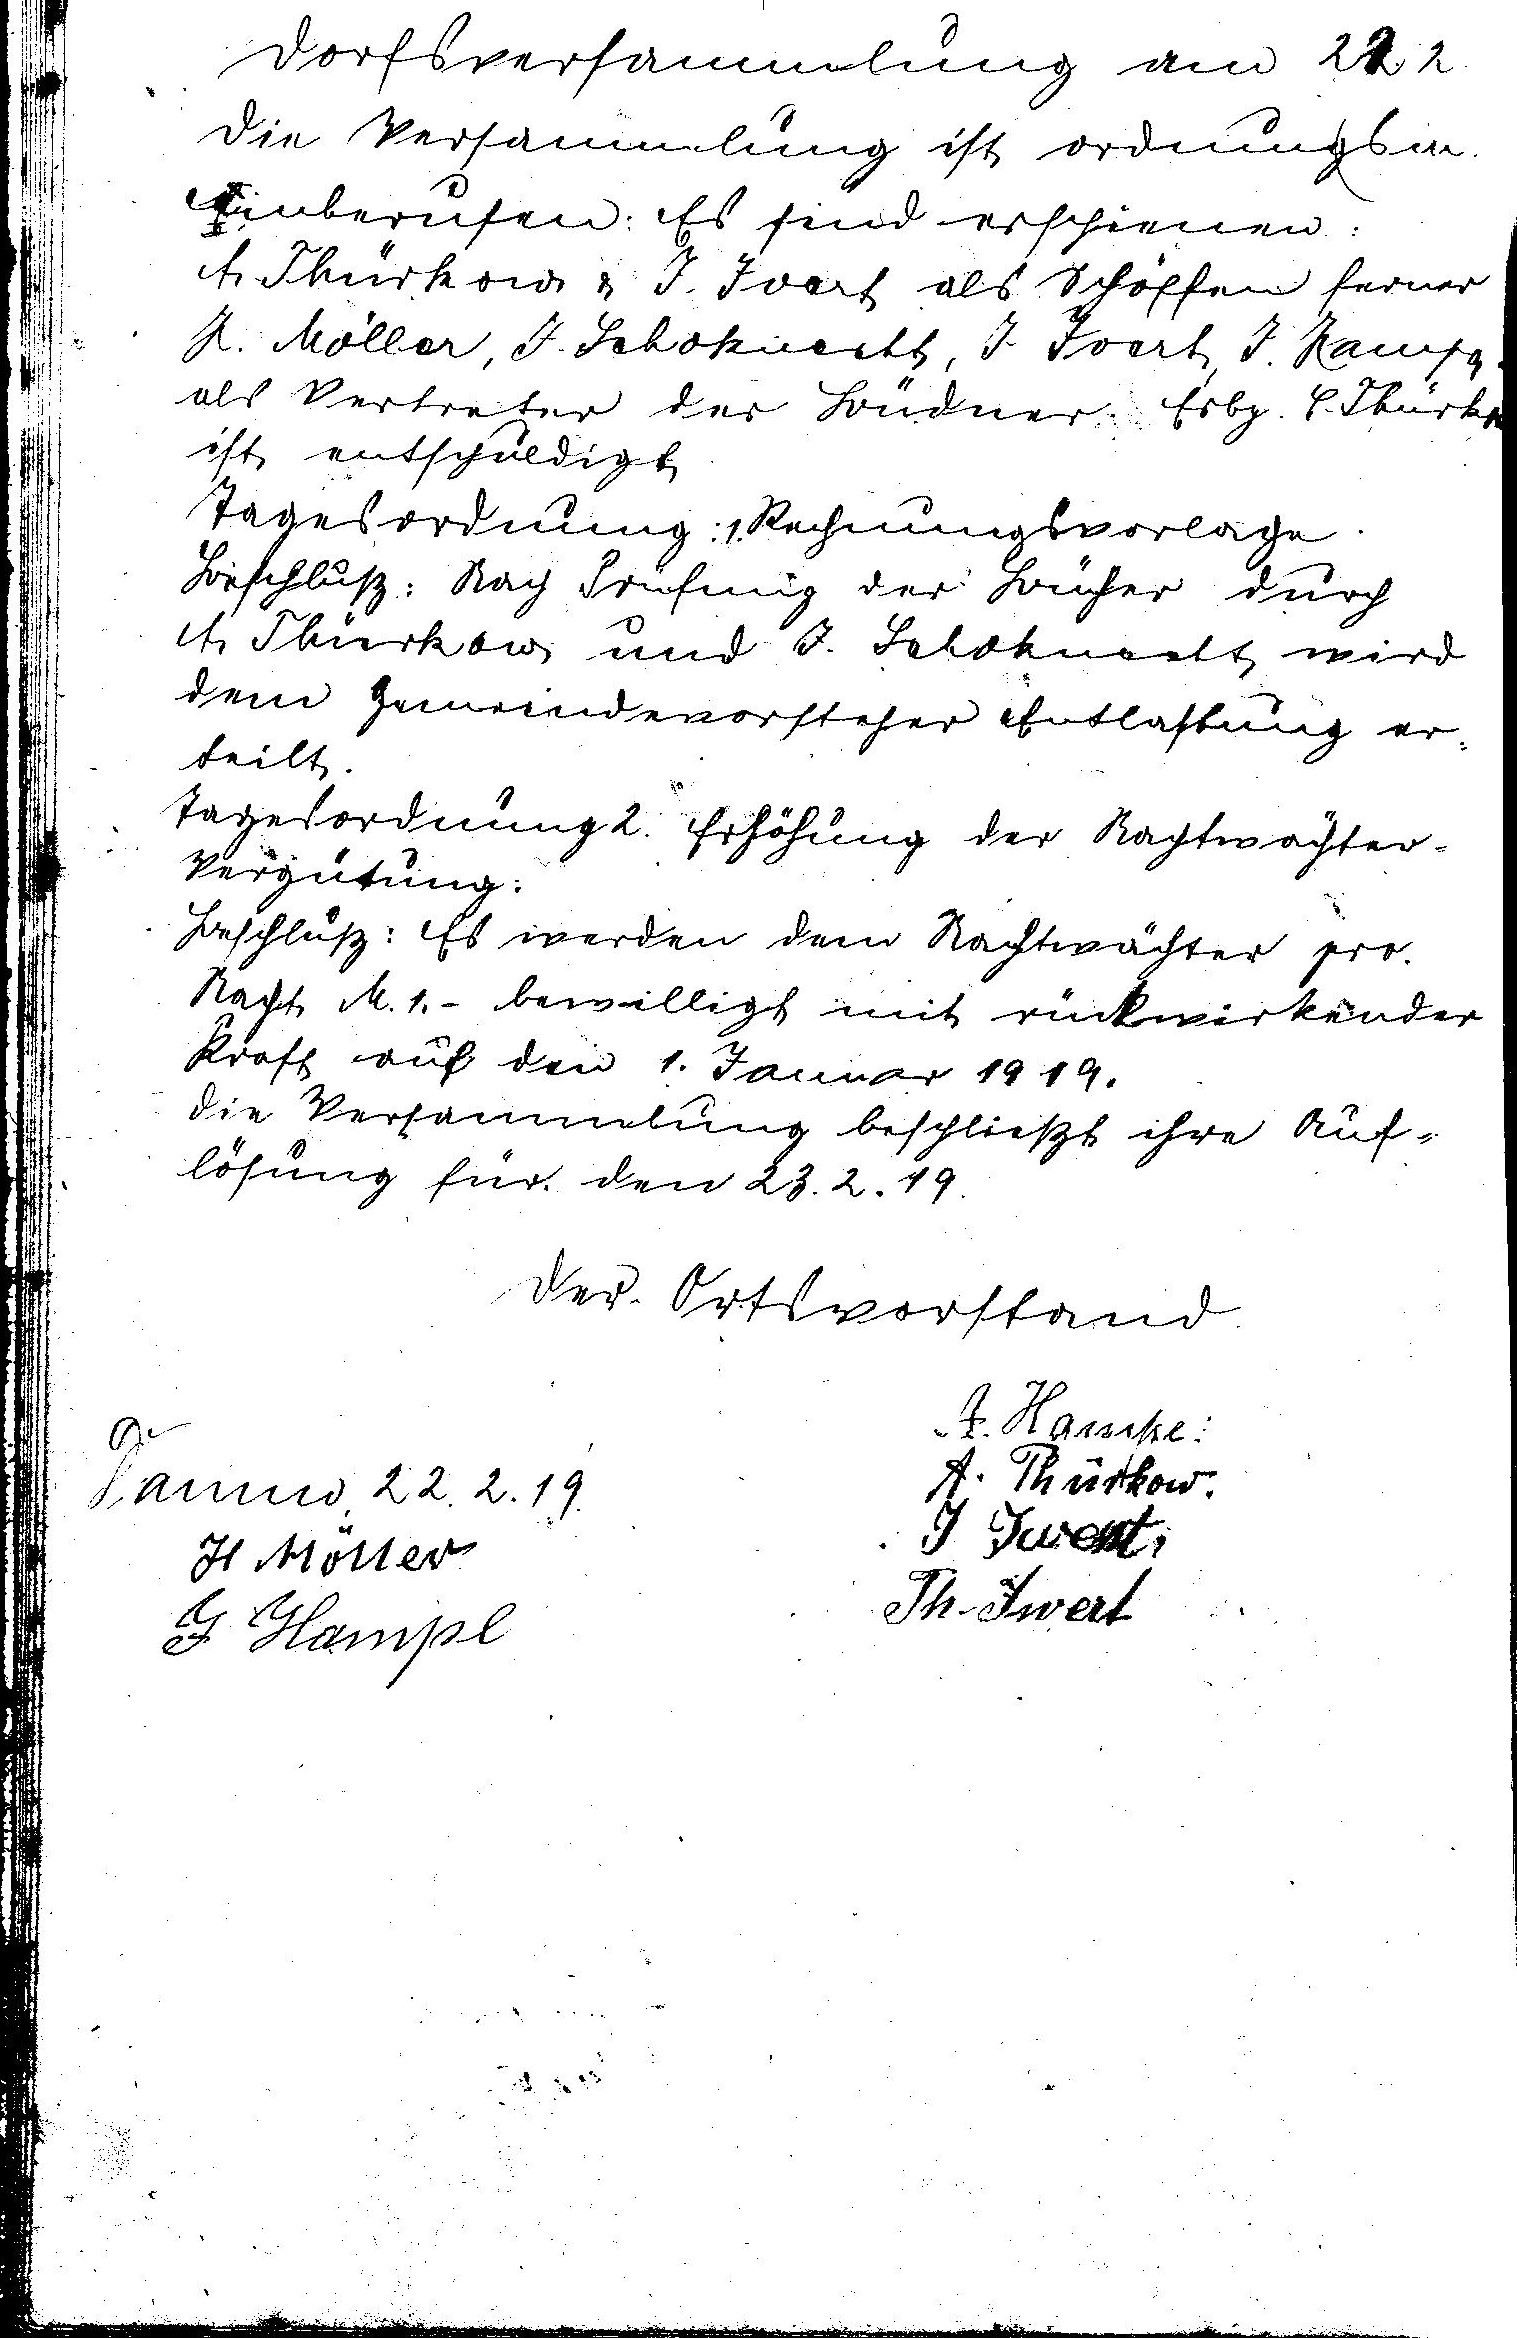 Dorfsversammlung am 22 2
Die Versammlung ist ordnungsm.
Einberufen: Es sind erschienen:
A. Thürkow & J. Ivert als Schöffen ferner
H. Möller, J. Schoknecht, J. Ivert, J. Hampe
als Vertreter der Büdner. Erbp. C. Thürko
ist entschuldigt
Tagesordnung: 1. Rechnungsvorlage.
Beschlusz: Nach Prüfung der Bücher durch
A. Thürkow und J. Schoknecht wird
dem Gemeindevorsteher Entlastung er-
teilt.
Tagesordnung 2. Erhöhung der Nachtwächter-
Vergütung:
Beschlusz: Es werden dem Nachtwächter pro.
Nacht M. 1.- bewilligt mit rückwirkender
Kraft auf den 1. Januar 1919.
Die Versammlung beschlieszt ihre Auf-
lösung für den 23. 2. 19.
Der Ortsvorstand
22. 2. 19.
H Möller
J Hampe
J. Hampe:
A. Thürkow.
J Iwert,
Th. Iwert